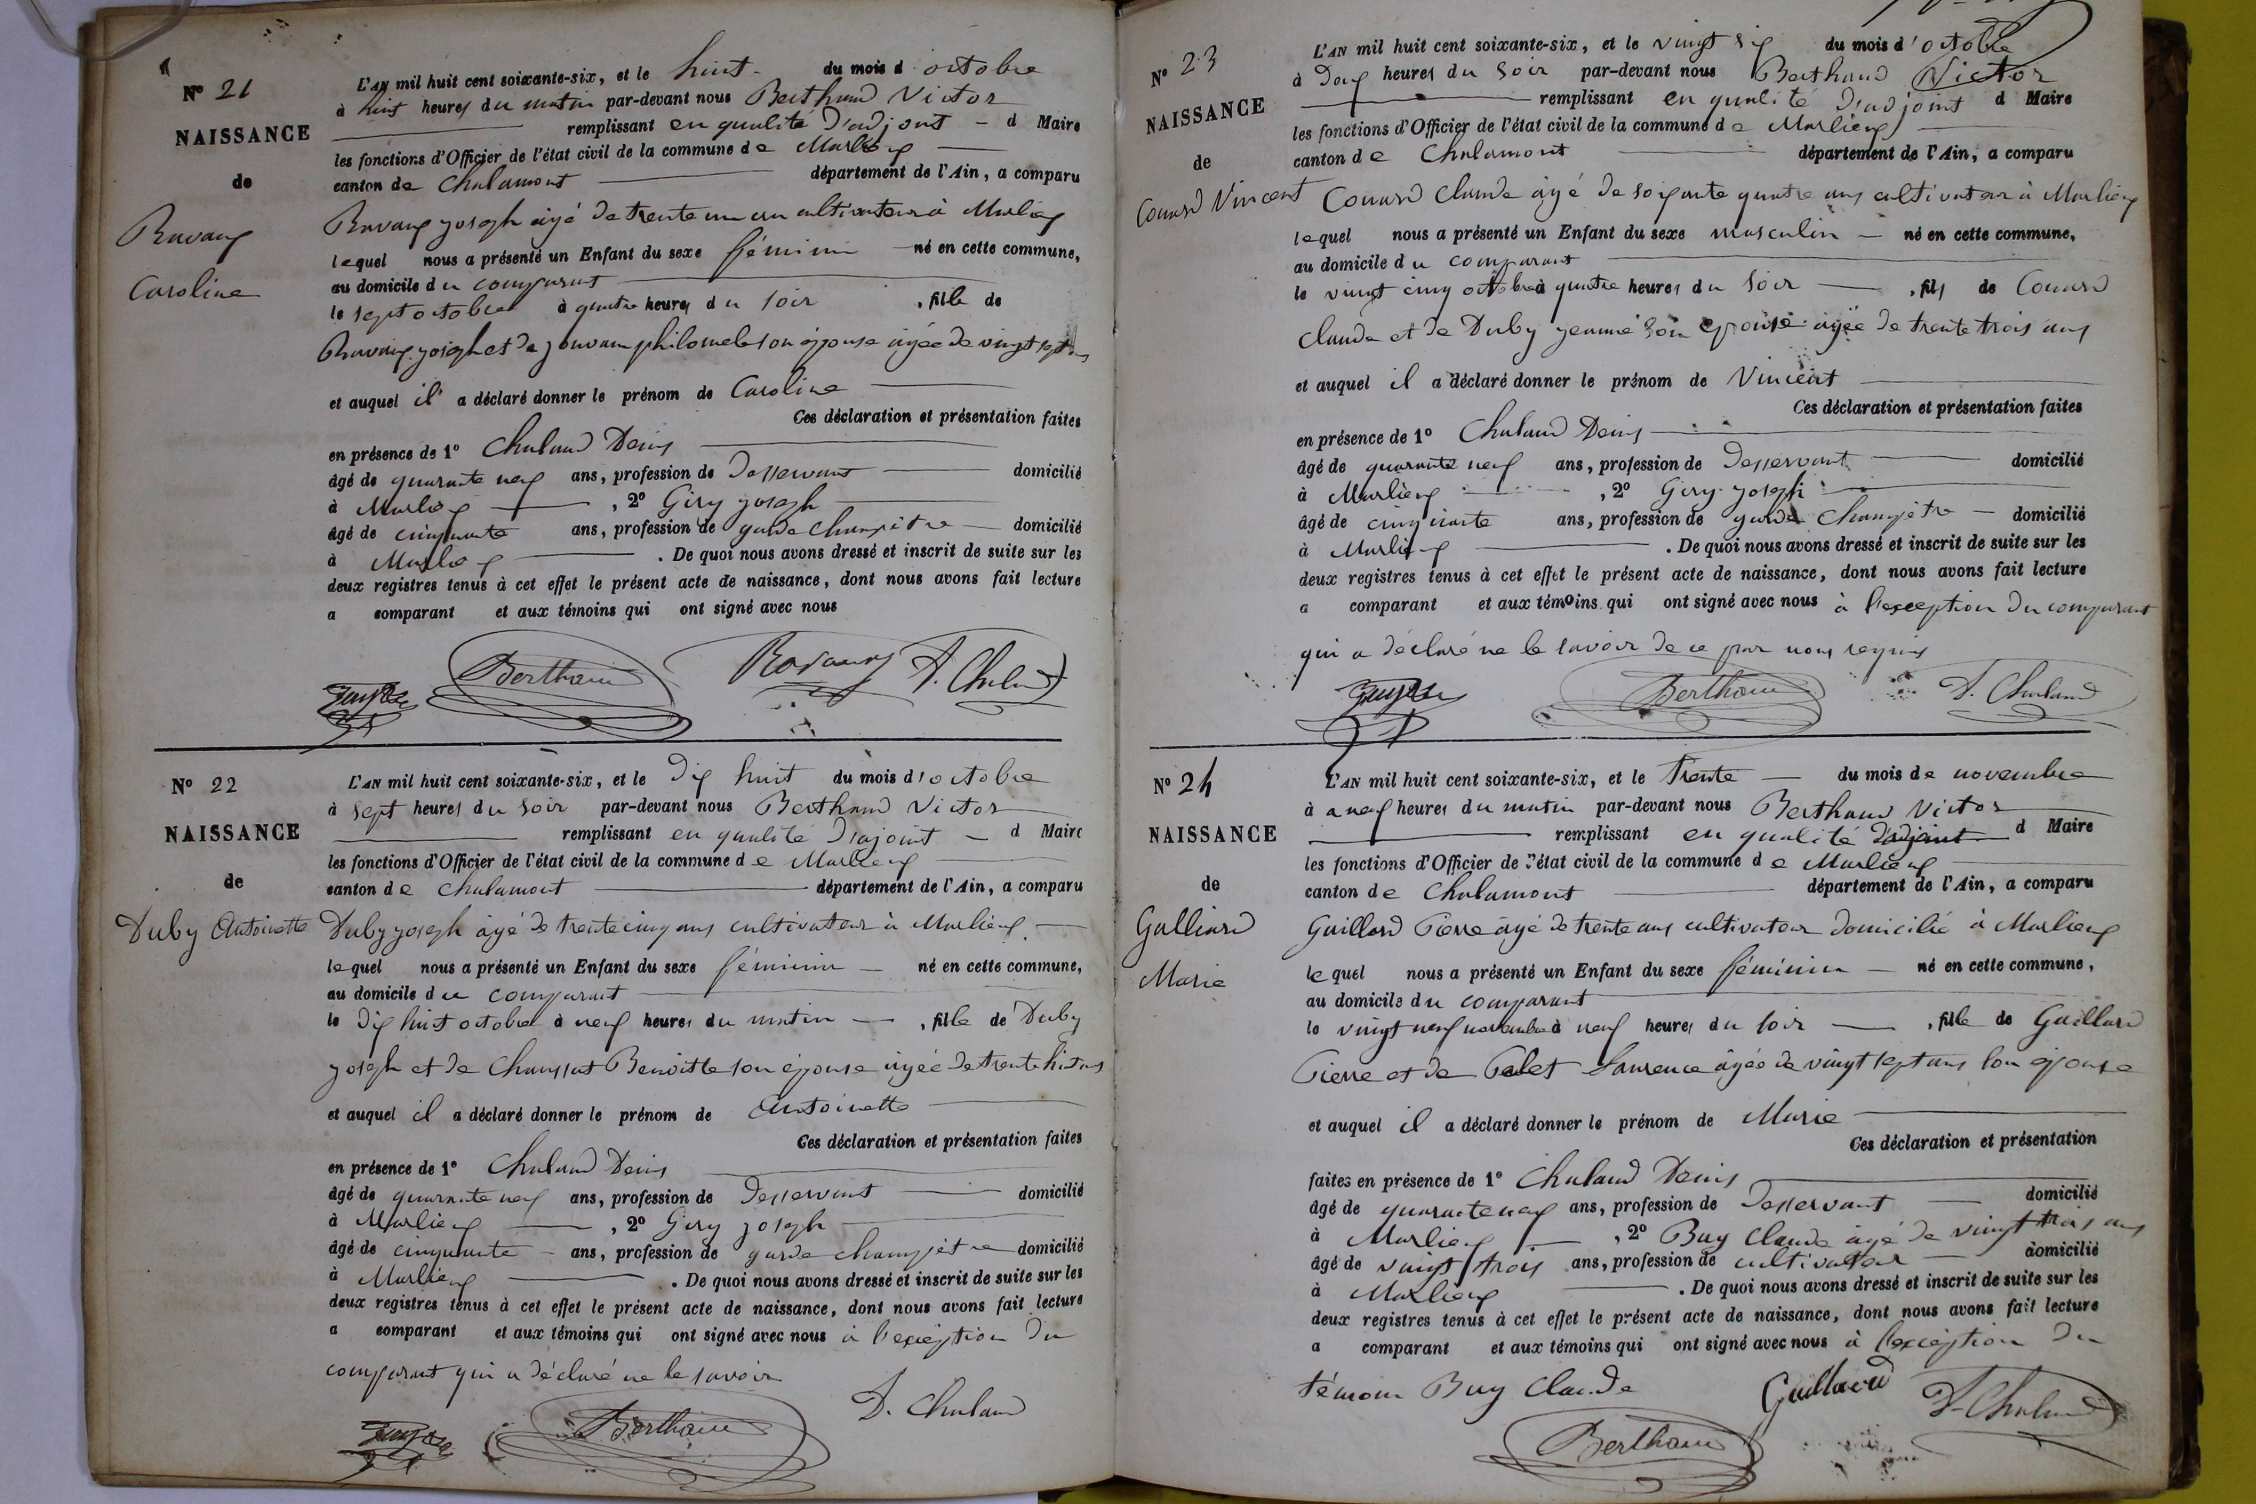 N° 21
NAISSANCE
de
Ravaux
Caroline
L'AN mil huit cent soixante-six, et le huit du mois d octobre
à huit heures du matin par-devant nous Berthaud Victor
remplissant en qualité d'adjoint d Maire
les fonctions d'Officier de l'état civil de la commune de Marlieux
canton de Chalamont département de l'Ain, a comparu
Ravaux joseph âgé de trente un an cultivateur à Marlieux
lequel nous a présenté un Enfant du sexe féminin né en cette commune,
au domicile du comparant
le sept octobre à quatre heures du soir , fille de
Ravaux joseph et de jouvam philomele son épouse âgée de vingt sept ans
et auquel il a déclaré donner le prénom de Caroline
Ces déclaration et présentation faites
en présence de 1° Chaland Denis
âgé de quarante neuf ans, profession de desservant domicilié
à Marlieux , 2° Giry joseph
âgé de cinquante ans, profession de garde champêtre domicilié
à Marlieux . De quoi nous avons dressé et inscrit de suite sur les
deux registres tenus à cet effet le présent acte de naissance, dont nous avons fait lecture
a comparant et aux témoins qui ont signé avec nous
Berthaud Ravaux D. Chaland
N° 22
NAISSANCE
de
Duby Antoinette
L'AN mil huit cent soixante-six, et le dix huit du mois d'octobre
à sept heures du soir par-devant nous Berthaud Victor
remplissant en qualité d'ajoint d Maire
les fonctions d'Officier de l'état civil de la commune de Marlieux
canton de Chalamont département de l'Ain, a comparu
Duby joseph âgé de trente cinq ans cultivateur à Marlieux
lequel nous a présenté un Enfant du sexe féminin né en cette commune,
au domicile du comparant
le dix huit octobre à neuf heures du matin , fille de Duby
joseph et de Chaussat Benoitte son épouse âgée de trente huit ans
et auquel il a déclaré donner le prénom de Antoinette
Ces déclaration et présentation faites
en présence de 1° Chaland Denis
âgé de quarante neuf ans, profession de desservant domicilié
à Marlieux , 2° Giry joseph
âgé de cinquante ans, profession de garde champêtre domicilié
à Marlieux . De quoi nous avons dressé et inscrit de suite sur les
deux registres tenus à cet effet le présent acte de naissance, dont nous avons fait lecture
a comparant et aux témoins qui ont signé avec nous à l'exception du
comparant qui a déclaré ne le savoir
D. Chaland
Berthaud
N° 23
NAISSANCE
de
Couard Vincent
L'AN mil huit cent soixante-six, et le vingt six du mois d'octobre
à deux heures du soir par-devant nous Berthaud Victor
remplissant en qualité d'adjoint d Maire
les fonctions d'Officier de l'état civil de la commune de Marlieux
canton de Chalamont département de l'Ain, a comparu
Couard Claude âgé de soixante quatre ans cultivateur à Marlieux
lequel nous a présenté un Enfant du sexe masculin né en cette commune,
au domicile du comparant
le vingt cinq octobre à quatre heures du soir , fils de Couard
Claude et de Duby jeanne son épouse âgée de trente trois ans
et auquel il a déclaré donner le prénom de Vincent
Ces déclaration et présentation faites
en présence de 1° Chaland Denis
âgé de quarante neuf ans, profession de desservant domicilié
à Marlieux , 2° Giry joseph
âgé de cinquante ans, profession de garde champêtre domicilié
à Marlieux . De quoi nous avons dressé et inscrit de suite sur les
deux registres tenus à cet effet le présent acte de naissance, dont nous avons fait lecture
a comparant et aux témoins qui ont signé avec nous à l'exception du comparant
qui a déclaré ne le savoir de ce par nous requis
Berthaud D. Chaland
N° 24
NAISSANCE
de
Galliard
Marie
L'AN mil huit cent soixante-six, et le trente du mois de novembre
à a neuf heures du matin par-devant nous Berthaud Victor
remplissant en qualité d'adjoint d Maire
les fonctions d'Officier de l'état civil de la commune de Marlieux
canton de Chalamont département de l'Ain, a comparu
Gaillard Pierre âgé de trente ans cultivateur domicilié à Marlieux
lequel nous a présenté un Enfant du sexe féminin né en cette commune,
au domicile du comparant
le vingt neuf novembre à neuf heures du soir , fille de Gaillard
Pierre et de Palet Laurence âgée de vingt sept ans son épouse
et auquel il a déclaré donner le prénom de Marie
Ces déclaration et présentation
faites en présence de 1° Chaland Denis
âgé de quarante neuf ans, profession de desservant domicilié
à Marlieux , 2° Buy Claude âgé de vingt trois ans
âgé de vingt trois ans, profession de cultivateur domicilié
à Marlieux . De quoi nous avons dressé et inscrit de suite sur les
deux registres tenus à cet effet le présent acte de naissance, dont nous avons fait lecture
a comparant et aux témoins qui ont signé avec nous à l'exception du
témoin Buy Claude Gaillard D. Chaland
Berthaud